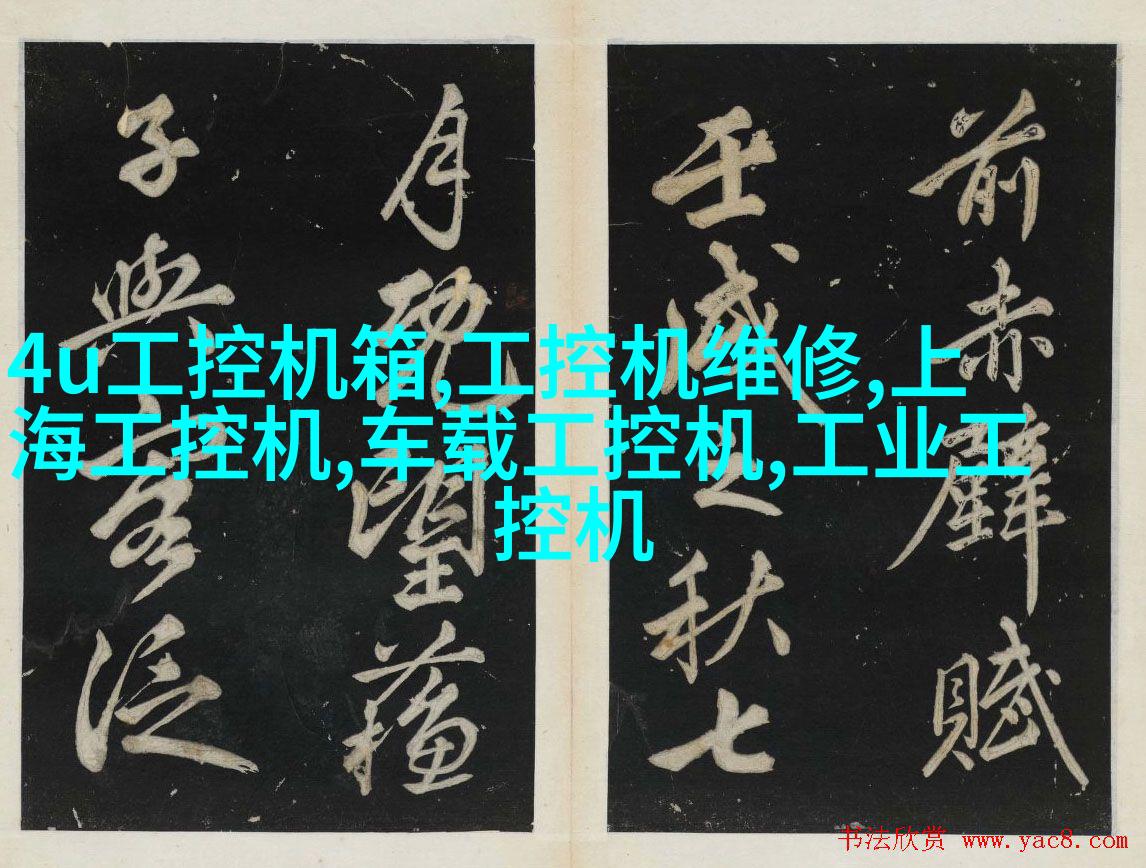 前赤壁賦
壬戌之秋七
月既望蘇
子與客泛
4u工控机箱,工控机维修,上
海工控机,车载工控机,工业工
控机
书法欣赏 www.yac8.com